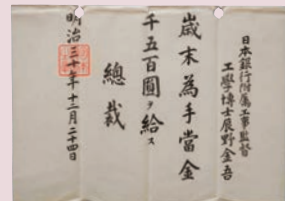 日本銀行附属工事監督
工學博士辰野金吾
歳末為手當金
千五百圓ヲ給ス
總裁
明治三十年十二月二十四日